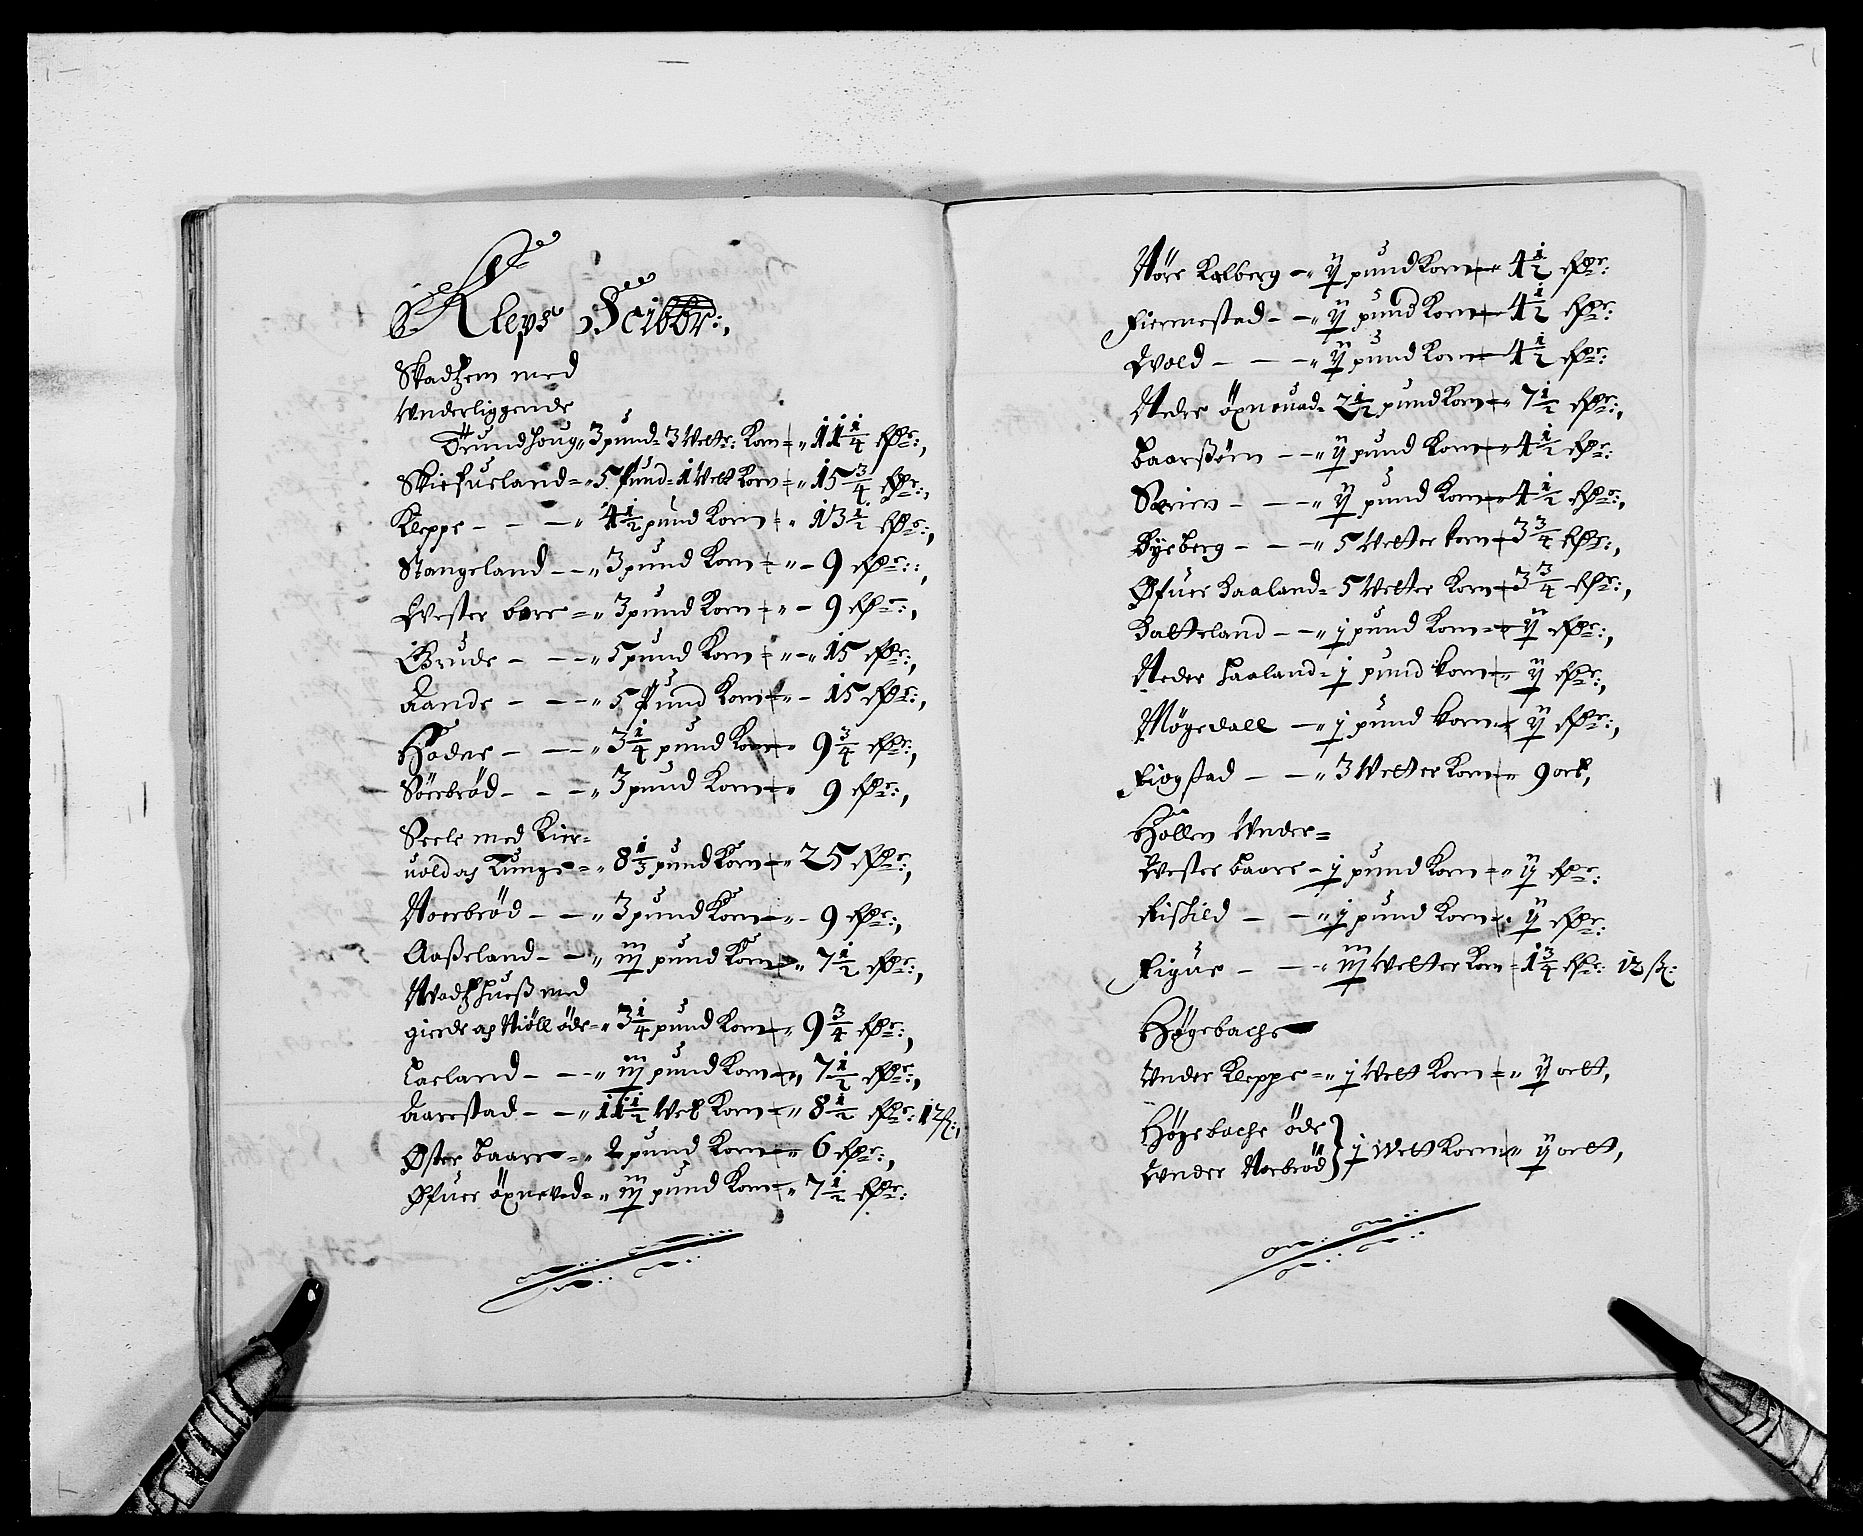 Kleps Schibbr:,
Skadhem med
Underliggende
Trundhoug „ 3 pund 3 Vett: Korn „ 11 1/4 rdr:,
Skiefueland = „ 5 pund 1 Vett Korn = „ 15 3/4 rdr:,
Kleppe – – – „ 4 1/2 pund Korn „ 13 1/2 rdr:,
Stangeland – – „ 3 pund Korn „ – 9 rdr:,
Vester bore = „ 3 pund Korn „ – 9 rdr:,
Grude – – – „ 5 pund Korn „ – „ 15 rdr:,
Aande – – – „ 5 pund Korn „ – 15 rdr:,
Hodne – – – „ 3 1/4 pund Korn „ 9 3/4 rdr:,
Sörbröd – – – „ 3 pund Korn „ 9 rdr:,
Seele med Kier=
uold og Tunge = „ 8 1/3 pund Korn „ 25 rdr:,
Noerbröd – – – „ 3 pund Korn „ – 9 rdr:,
Aaßeland – – „ iij pund Korn „ 7 1/2 rdr:,
Wadshueß med
gierde og Niöll öde = „ 3 1/4 pund Korn „ 9 3/4 rdr:,
Laeland – – – „ iij pund Korn „ 7 1/2 rdr:,
Aarestad – – „ 11 1/2 Vet Korn „ 8 1/2 rdr: 12 ß:,
Øster baare = „ 2 pund Korn „ 6 rdr:,
Øfuer öxneved = „ iij pund Korn „ 7 1/2 rdr:
Nöre Kalberg – „ ij pund Korn „ 4 1/2 rdr:
Fiermestad – – „ ij pund Korn 4 1/2 rdr:
Vold – – – „ ij pund Korn 4 1/2 rdr:
Neder öxneuad = 2 1/2 pund Korn „ 7 1/2 rdr:,
Baarßöm – – „ ij pund Korn „ 4 1/2 rdr:
Sæiev – – – „ ij pund Korn 4 1/2 rdr:,
Byeberg – – – „ 5 Vetter korn 3 3/4 rdr:,
Øfuer Haaland = 5 Vetter Korn 3 3/4 rdr:,
Hatteland – – „ j pund Korn = „ ij rdr:,
Neder Haaland = j pund korn „ ij rdr:,
Mögedall – „ j pund korn „ ij rdr:,
Fiogstad – – „ 3 Vetter Korn „ 9 ort,
Hollen Under=
Vester baare – j pund Korn = „ ij rdr:
Riskild – – „ j pund Korn „ ij rdr:
Figue – – – „ iij Vetter Korn = 1 3/4 rdr: 12 ß:
Høgebache
Under Kleppe = „ j Vett Korn = „ ij ortt,
Høgebache öde
Under Norbröd } j Vett Korn „ ij ortt,